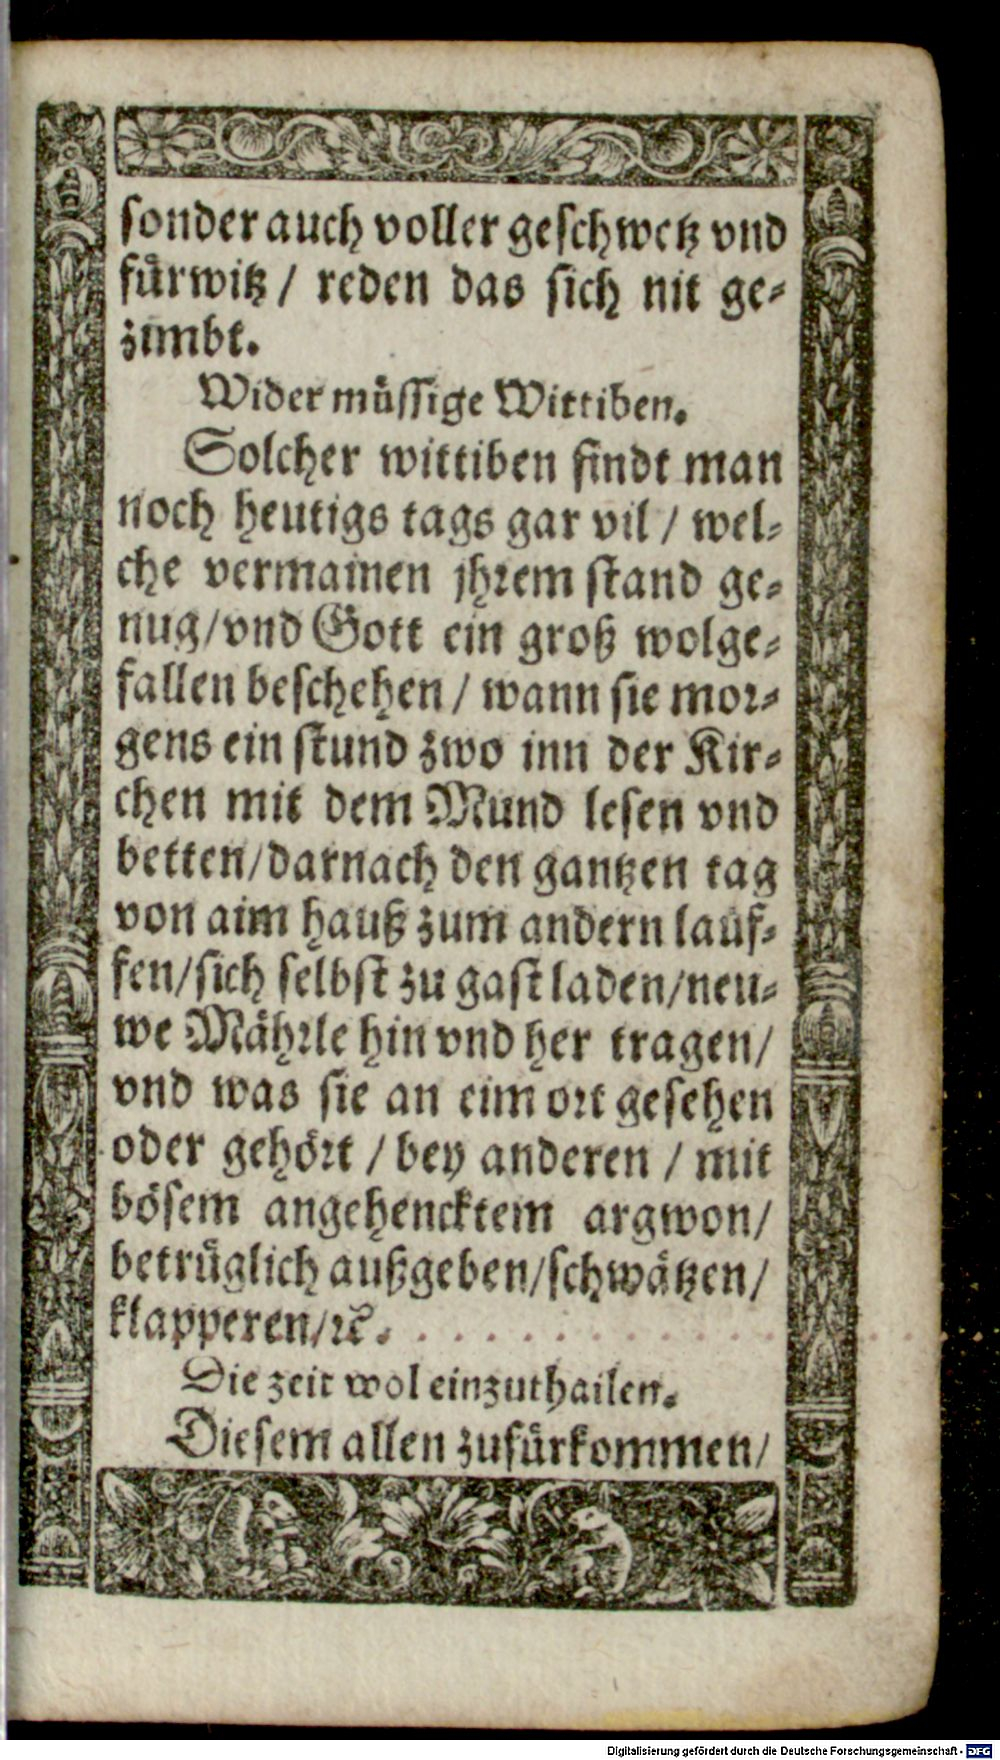 sonder auch voller geschwetz vnd
fürwitz / reden das sich nit ge-
zimbt.
Wider müssige Wittiben.
Solcher wittiben findt man
noch heutigs tags gar vil / wel-
che vermainen jhrem stand ge-
nug/vnd Gott ein groß wolge-
fallen beschehen / wann sie mor-
gens ein stund zwo inn der Kir-
chen mit dem Mund lesen vnd
betten/darnach den gantzen tag
von aim hauß zum andern lauf-
fen/sich selbst zu gast laden/neu-
we Mährle hin vnd her tragen/
vnd was sie an eim ort gesehen
oder gehört / bey anderen / mit
bösem angehencktem argwon/
betrüglich außgeben/schwätzen/
klapperen/ꝛc.
Die zeit wol einzuthailen.
Diesem allen zufürkommen/
Digitalisierung gefördert durch die Deutsche Forschungsgemeinschaft - DFG